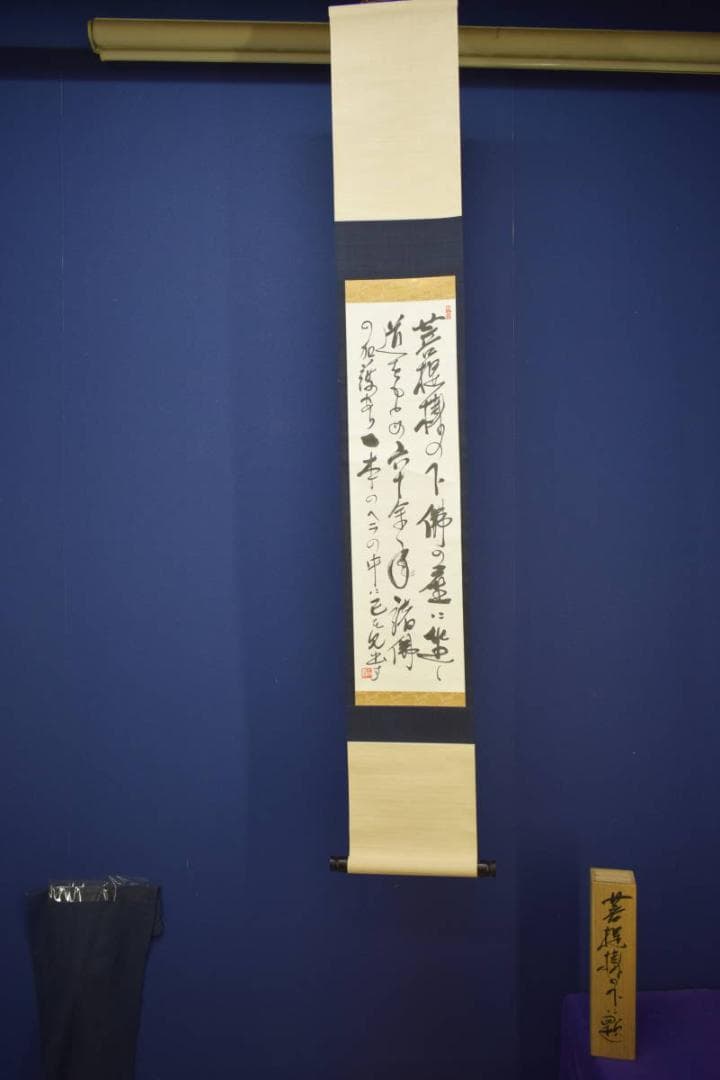 菩提樹の下佛の座に坐し
道をもとめ六十余年諸佛
の加護あり一本のヘラの中に己を見出す
菩提樹の下に